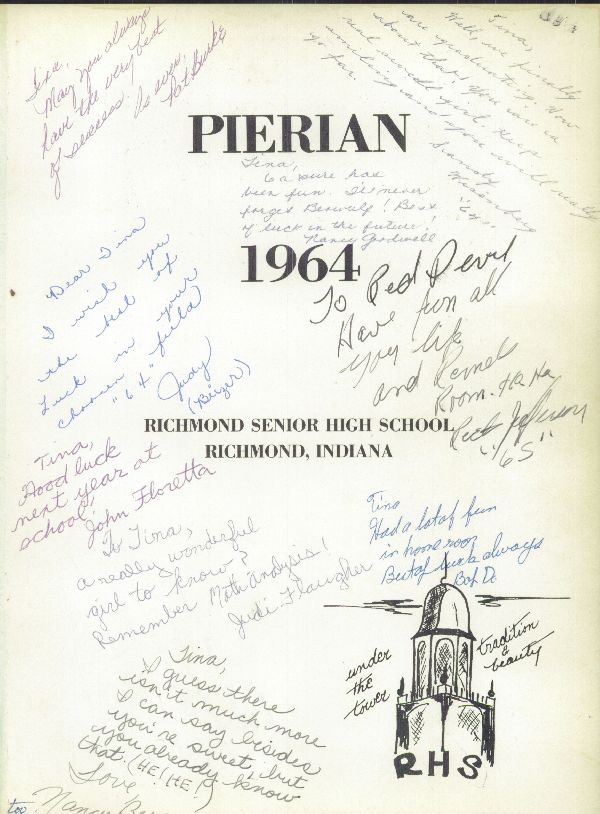 Tina,
May you always
have the very best
of success!
As ever,
Pat Burke
Tina,
Well, we finally
are graduating. How
about that! You are a
real swell girl. Keep
smiling and you will really
go far.
Sandy
"64"
PIERIAN
Tina,
6a sure has
been fun. I'll never
forget Beowulf! Best
of luck in the future!
Nancy Goodwell
1964
To Red Devil
Have fun all
you like
and
Room. Ha Ha
Jefferson
"65"
Dear Tina
I wish you
the best of
Luck in your
choosen field
"64" Judy
(Beizer)
RICHMOND SENIOR HIGH SCHOOL
RICHMOND, INDIANA
Tina,
Good luck
next year at
school!
John Floretta
To Tina,
a really wonderful
girl to know?
Remember Math analysis!
Judi Flaugher
Tina
Had a lot of fun
in home room
Best of luck always
Bob D.
under
the
tower
tradition
&
beauty
RHS
Tina,
I guess there
isn't much more
I can say besides
you're sweet, but
you already know
that. (HE! HE!)
Love
too. Nancy